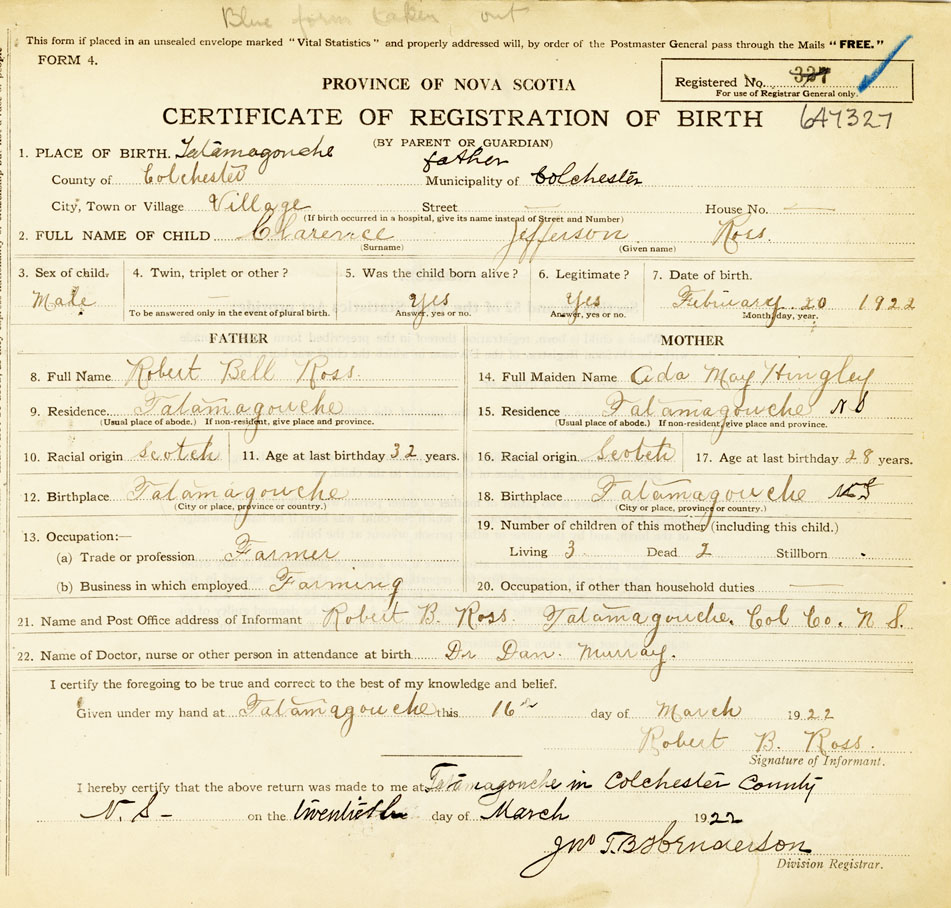 Blue form taken out
This form if placed in an unsealed envelope marked "Vital Statistics" and properly addressed will, by order of the Postmaster General pass through the Mails "FREE."
FORM 4.
PROVINCE OF NOVA SCOTIA
Registered No. 327
For use of Registrar General only.
CERTIFICATE OF REGISTRATION OF BIRTH 647327
(BY PARENT OR GUARDIAN)
father
1. PLACE OF BIRTH. Tatamagouche
County of Colchester Municipality of Colchester
City, Town or Village Village Street — House No. —
(If birth occurred in a hospital, give its name instead of Street and Number)
2. FULL NAME OF CHILD Clarence Jefferson Ross
(Surname) (Given name)
3. Sex of child. 4. Twin, triplet or other? 5. Was the child born alive? 6. Legitimate? 7. Date of birth.
Male — Yes Yes February 20 1922
To be answered only in the event of plural birth. Answer, yes or no. Answer, yes or no. Month, day, year.
FATHER MOTHER
8. Full Name Robert Bell Ross 14. Full Maiden Name Ada May Hingley
9. Residence Tatamagouche 15. Residence Tatamagouche NS
(Usual place of abode.) If non-resident, give place and province. (Usual place of abode.) If non-resident, give place and province.
10. Racial origin Scotch 11. Age at last birthday 32 years. 16. Racial origin Scotch 17. Age at last birthday 28 years.
12. Birthplace Tatamagouche 18. Birthplace Tatamagouche NS
(City or place, province or country.) (City or place, province or country.)
13. Occupation:— 19. Number of children of this mother (including this child.)
(a) Trade or profession Farmer Living 3 Dead 2 Stillborn .
(b) Business in which employed Farming 20. Occupation, if other than household duties —
21. Name and Post Office address of Informant Robert B. Ross. Tatamagouche. Col Co. N S.
22. Name of Doctor, nurse or other person in attendance at birth Dr Dan. Murray.
I certify the foregoing to be true and correct to the best of my knowledge and belief.
Given under my hand at Tatamagouche this 16th day of March 1922
Robert B. Ross.
Signature of Informant.
I hereby certify that the above return was made to me at Tatamagouche in Colchester County
N. S— on the twentieth day of March 1922
Jno T. B Henderson
Division Registrar.